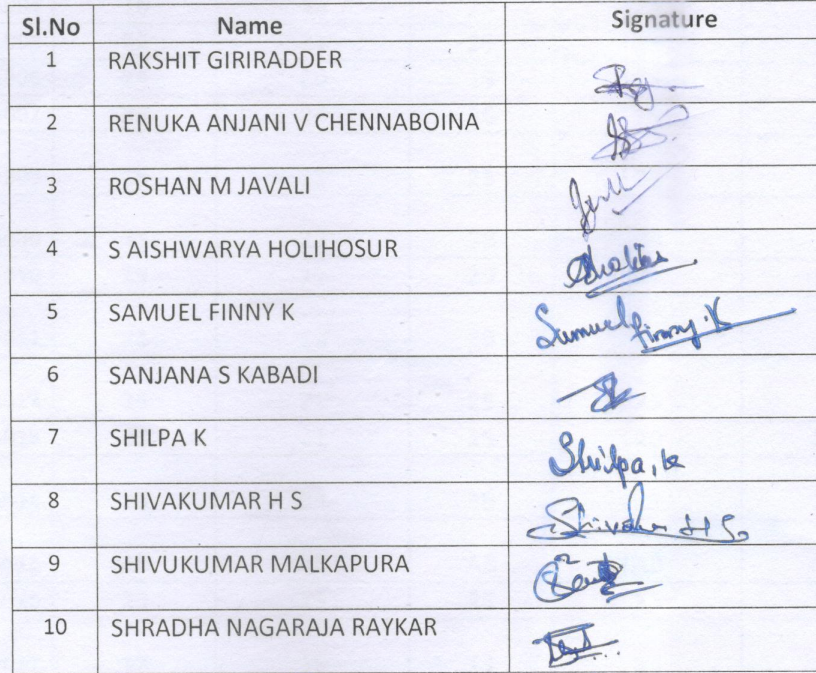 Sl.No Name Signature
1 RAKSHIT GIRIRADDER
2 RENUKA ANJANI V CHENNABOINA
3 ROSHAN M JAVALI
4 S AISHWARYA HOLIHOSUR
5 SAMUEL FINNY K Samuel finny.K
6 SANJANA S KABADI
7 SHILPA K Shilpa.k
8 SHIVAKUMAR H S
9 SHIVUKUMAR MALKAPURA
10 SHRADHA NAGARAJA RAYKAR